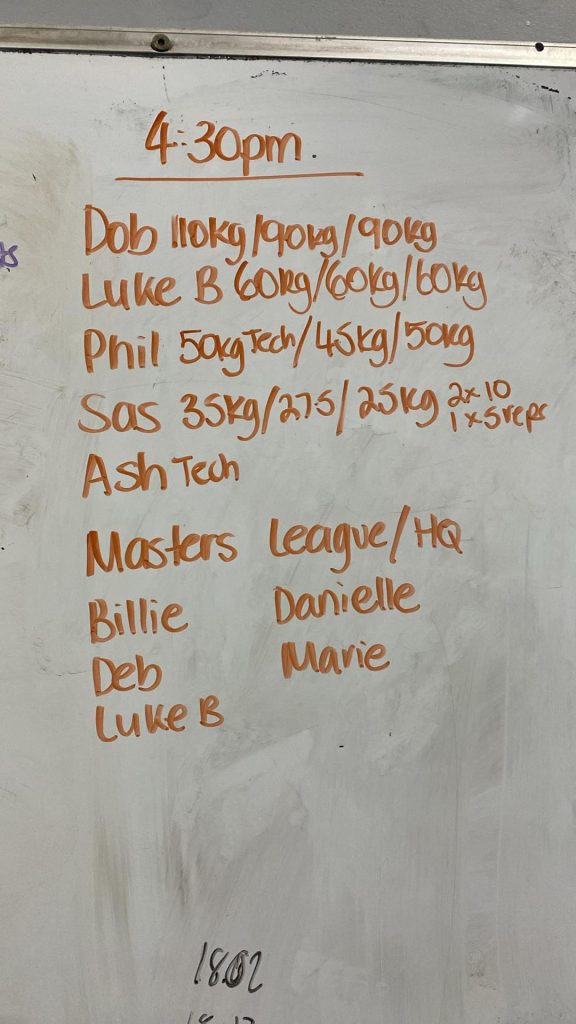 4:30pm.
Dob 110kg/90kg/90kg
Luke B 60kg/60kg/60kg
Phil 50kg Tech/45kg/50kg
Sas 35kg/27.5/25kg 2x10
1x5 reps
Ash Tech
Masters League/HQ
Billie Danielle
Deb Marie
Luke B